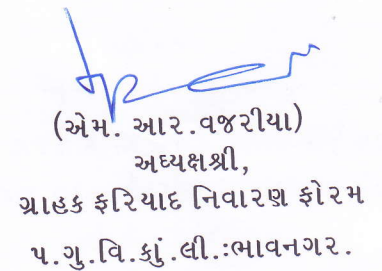 (એમ. આર.વજરીયા)
અધ્યક્ષશ્રી,
ગ્રાહક ફરિયાદ નિવારણ ફોરમ
પ.ગુ.વિ.કાું.લી.:ભાવનગર.